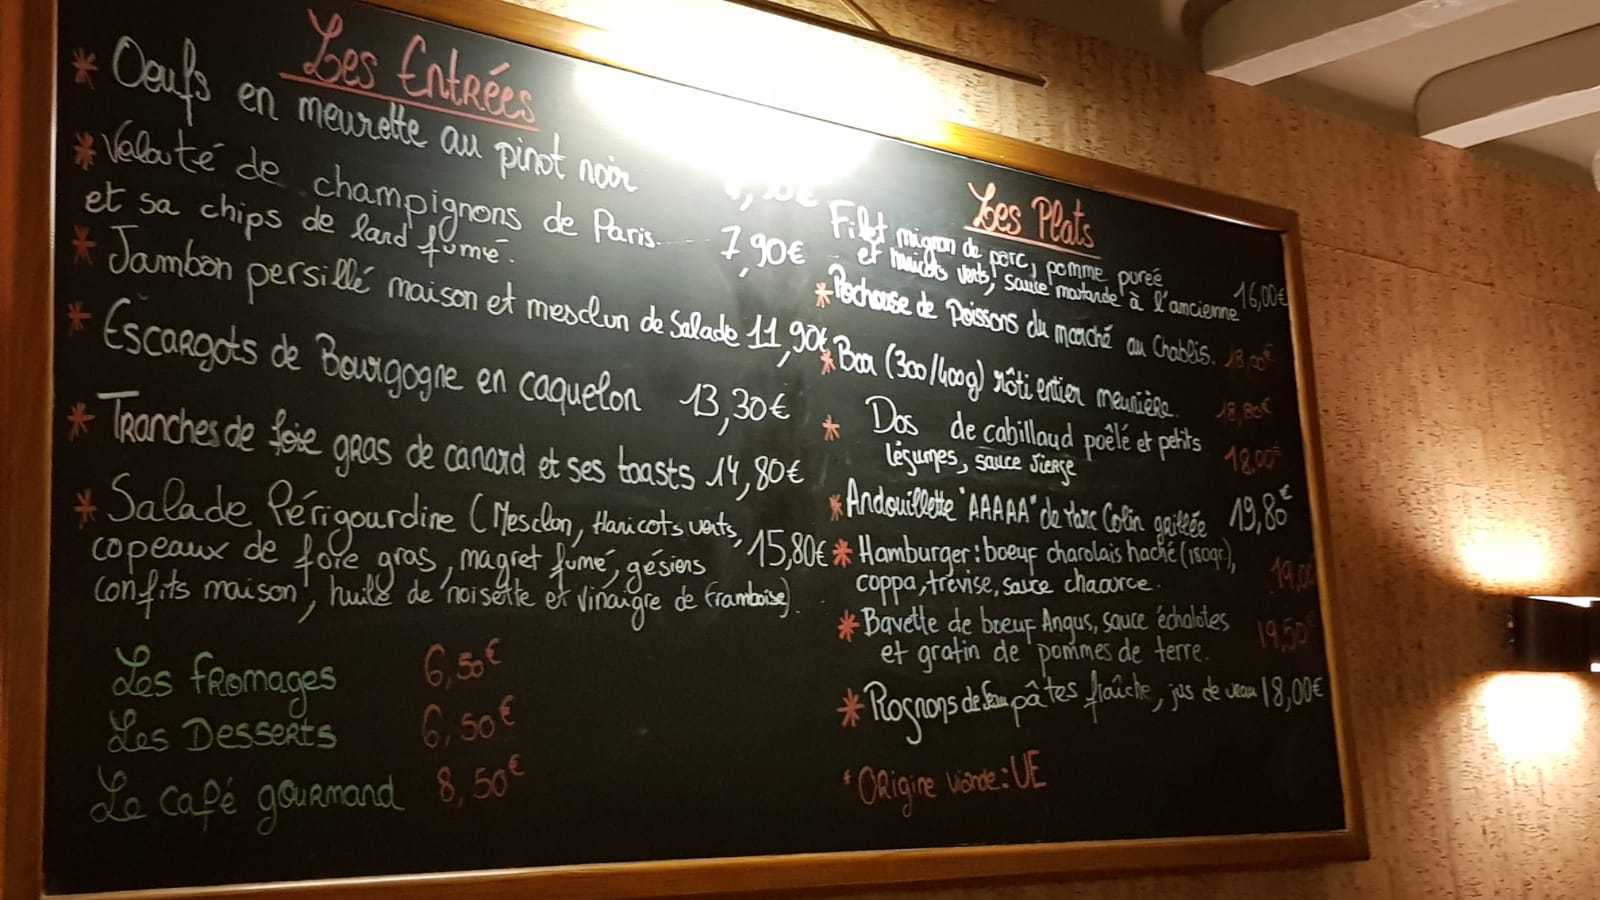 Les Entrées
* Oeufs en meurette au pinot noir
* Velouté de champignons de Paris 7,90€
et sa chips de lard fumé.
* Jambon persillé maison et mesclun de Salade 11,90€
* Escargots de Bourgogne en caquelon 13,30€
* Tranches de foie gras de canard et ses toasts 14,80€
* Salade Périgourdine (Mesclun, Haricots verts, 15,80€
copeaux de foie gras, magret fumé, gésiers
confits maison, huile de noisette et vinaigre de framboise).
Les fromages 6,50€
Les Desserts 6,50€
Le café gourmand 8,50€
Les Plats
Filet mignon de porc, pomme pureé
et haricots verts, sauce moutarde à l'ancienne 16,00€
* Pochouse de Poissons du marché au Chablis. 18,00€
* Bar (300/400g) rôti entier meunière. 18,80€
* Dos de cabillaud poêlé et petits
légumes, sauce vierge 18,00€
* Andouillette "AAAAA" de Marc Colin grillée 19,80€
* Hamburger: boeuf charolais haché (180gr),
coppa, trévise, sauce chaource.
* Bavette de boeuf Angus, sauce échalotes 19,50€
et gratin de pommes de terre.
* Rognons de Veau pâtes fraîche, jus de veau 18,00€
* Origine viande: UE